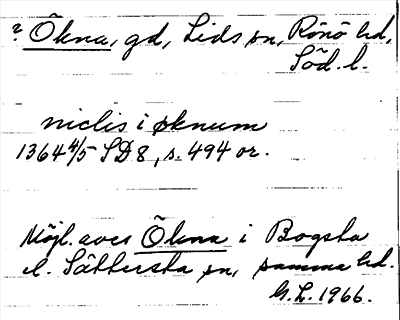 ? Ökna, gd, Lids sn, Rönö hd,
Söd. l.
niclis i øknum
1364 4/5 SD 8, s. 494 or.
Möjl. avses Ökna i Bogsta
el. Sättersta sn, samma hd.
G.L. 1966.